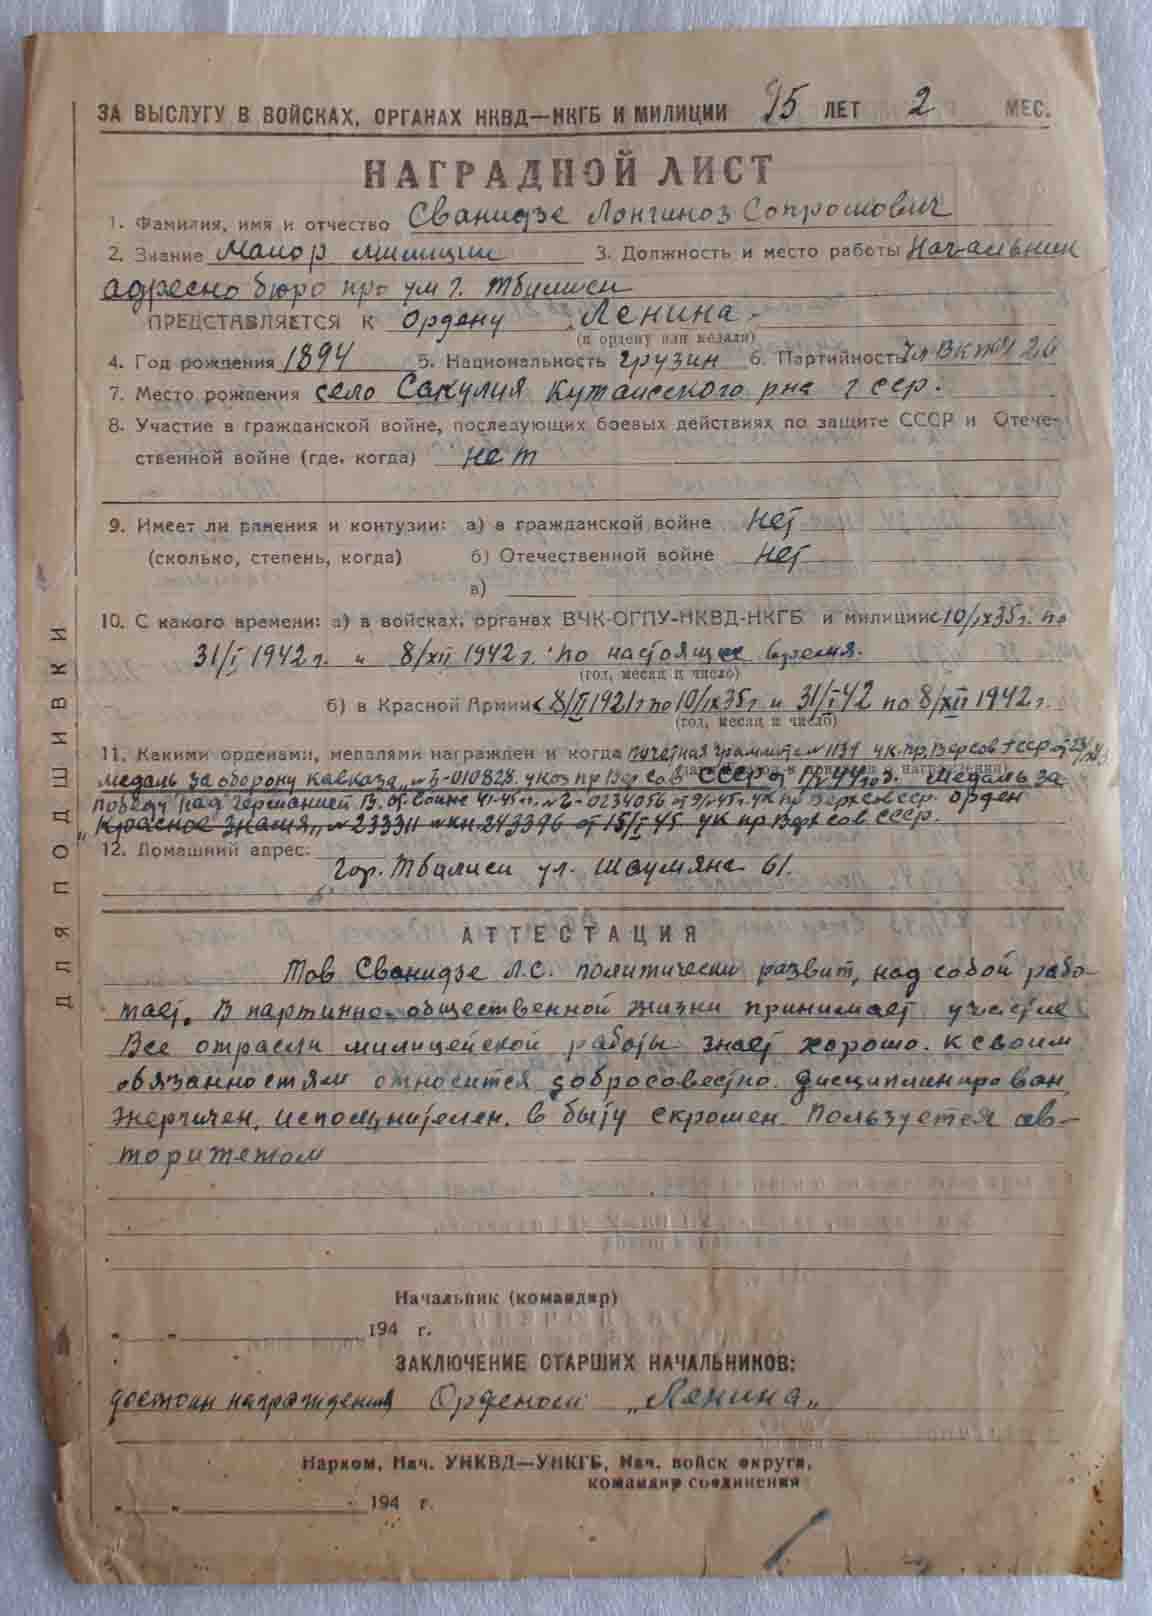 ЗА ВЫСЛУГУ В ВОЙСКАХ, ОРГАНАХ НКВД—НКГБ И МИЛИЦИИ 25 ЛЕТ 2 МЕС.
НАГРАДНОЙ ЛИСТ
1. Фамилия, имя и отчество Сванидзе Лонгиноз Сопромович
2. Звание Майор милиции 3. Должность и место работы Начальник
адресно бюро при ум г. Тбилиси
ПРЕДСТАВЛЯЕТСЯ К Ордену „Ленина"
(к ордену или медали)
4. Год рождения 1894 5. Национальность грузин 6. Партийность Чл ВКП/б/ 26
7. Место рождения село Сакулия Кутаисского рна гсср.
8. Участие в гражданской войне, последующих боевых действиях по защите СССР и Отече-
ственной войне (где, когда) нет
9. Имеет ли ранения и контузии: а) в гражданской войне нет
(сколько, степень, когда) б) Отечественной войне нет
в)
10. С какого времени: а) в войсках, органах ВЧК-ОГПУ-НКВД-НКГБ и милиции с 10/IX 35г. по
31/I 1942 г. и 8/XII 1942 г. по настоящее время.
(год, месяц и число)
б) в Красной Армии с 8/II 1921г по 10/IX 35г и 31/I 42 по 8/XII 1942 г.
(год, месяц и число)
11. Какими орденами, медалями награжден и когда почетная грамота №1137 ук. пр. Верхсов гсср от
медаль за оборону Кавказа, № З-010828. указ пр Вер Сов СССР от 1/V 44 год. медаль за
победу над Германией В. от. войне 41-45 г. 0234056 от 9/V 45 г. ук пр Верхсов ссср. орден
„Красное Знамя„ № 233311 кн. 243396 от 15/I 45 ук пр Верх сов ссср.
12. Домашний адрес:
гор. Тбилиси ул. Шаумяна 61.
АТТЕСТАЦИЯ
Тов Сванидзе Л.С. политически развит, над собой рабо-
тает. В партинно-общественной жизни принимает участие
Все отрасли милицейской работы знает хорошо. К своим
обязанностям относится добросовестно. дисциплинирован,
энергичен, исполнителен. в быту скромен. Пользуется ав-
торитетом
Начальник (командир)
„ „ 194 г.
ЗАКЛЮЧЕНИЕ СТАРШИХ НАЧАЛЬНИКОВ:
достоин награждения Орденом „Ленина„
Нарком, Нач. УНКВД—УНКГБ, Нач. войск округа,
командир соединения
„ „ 194 г.
ДЛЯ ПОДШИВКИ